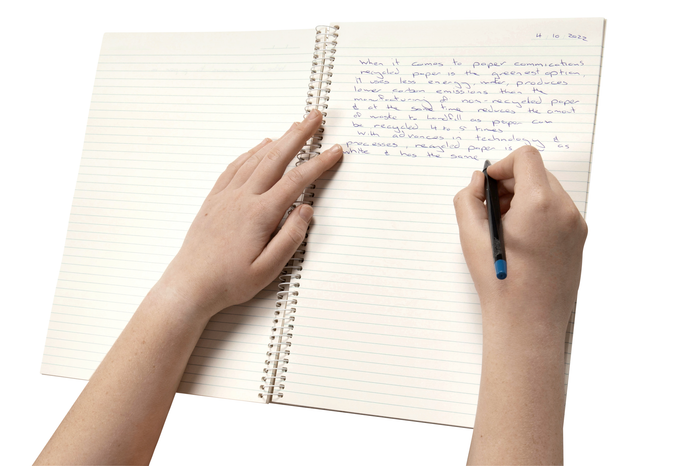 4. 10. 2022
When it comes to paper commications
recycled paper is the greenest option,
it uses less energy, water, produces
lower carbon emissions than the
manufacturing of non-recycled paper
& at the same time reduces the amount
of waste to landfill as paper can
be recycled 4 to 5 times
With advances in technology &
processes, recycled paper is as
white & has the same